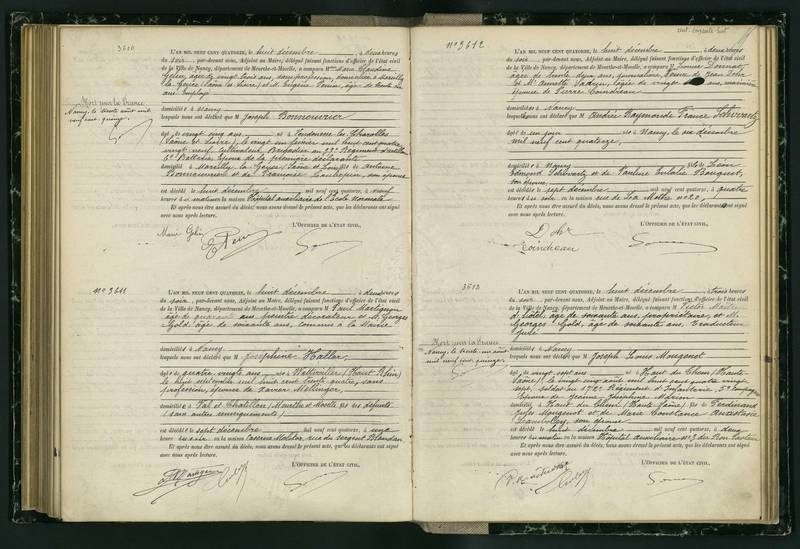 3610
L'AN MIL NEUF CENT QUATORZE, le huit décembre, à deux heures
du soir, par-devant nous, Adjoint au Maire, délégué faisant fonctions d'officier de l'état civil
de la Ville de Nancy, département de Meurthe-et-Moselle, a comparu M
âgée de vingt trois ans, sans profession, domiciliée à Marcilly
la Gueurce (Saône et Loire) et M. Eugène âgé de trente
ans employé
Mort pour la France
Nancy, le trente août mil
neuf cent quinze
domiciliés à Nancy
lesquels nous ont déclaré que M Joseph Bonnourrier
âgé de vingt cinq ans, né à Vendenesse les Charolles
(Saône et Loire), le vingt six février mil huit cent quatre
vingt neuf, cultivateur, Brigadier au Régiment d'artillerie
6e Batterie, époux de la première déclarante
domicilié à Marcilly la Gueurce (Saône et Loire) fils de Antoine
Bonnourrier et de Françoise son épouse
est décédé le huit décembre mil neuf cent quatorze, à neuf
heures du matin en la maison Hôpital auxiliaire de l'École Normale
Et après nous être assuré du décès, nous avons dressé le présent acte, que les déclarants ont signé
avec nous après lecture.
L'OFFICIER DE L'ÉTAT CIVIL,
N° 3611
L'AN MIL NEUF CENT QUATORZE, le huit décembre, à deux heures
du soir, par-devant nous, Adjoint au Maire, délégué faisant fonctions d'officier de l'état civil
de la Ville de Nancy, département de Meurthe-et-Moselle, a comparu M Paul Martignon
âgé de quarante ans, peintre décorateur et M. Georges
Gold, âgé de soixante ans, commis à la Mairie
domiciliés à Nancy
lesquels nous ont déclaré que M Joséphine Haller
âgée de quatre vingts ans, née à Wattwiller (Haut Rhin)
le huit mil huit cent trente quatre, sans
profession, épouse de Xavier Mellinger
domiciliée à Val et Chatillon (Meurthe et Moselle) fille des défunts
(sans autres renseignements)
est décédée le sept décembre mil neuf cent quatorze, à une
heure du soir en la maison Caserne Molitor, rue du sergent Blandan
Et après nous être assuré du décès, nous avons dressé le présent acte, que les déclarants ont signé
avec nous après lecture.
L'OFFICIER DE L'ÉTAT CIVIL,
N° 3612
L'AN MIL NEUF CENT QUATORZE, le huit décembre, à deux heures
du soir, par-devant nous, Adjoint au Maire, délégué faisant fonctions d'officier de l'état civil
de la Ville de Nancy, département de Meurthe-et-Moselle, a comparu M
âgée de trente deux ans, journalière,
et Me âgée de vingt ans,
épouse de Pierre Coindreau
domiciliés à Nancy
lesquels nous ont déclaré que M Andrée Raymonde France Schvartz
âgée de un jour née à Nancy, le six décembre
mil neuf cent quatorze,
domiciliée à Nancy fille de Léon
Edmond Schvartz et de Pauline Eulalie Bouquet,
son épouse
est décédée le sept décembre mil neuf cent quatorze, à quatre
heures du soir en la maison rue de La Mothe n° 20,
Et après nous être assuré du décès, nous avons dressé le présent acte, que les déclarants ont signé
avec nous après lecture.
L'OFFICIER DE L'ÉTAT CIVIL,
Coindreau
3613
L'AN MIL NEUF CENT QUATORZE, le huit décembre, à trois heures
du soir, par-devant nous, Adjoint au Maire, délégué faisant fonctions d'officier de l'état civil
de la Ville de Nancy, département de Meurthe-et-Moselle, a comparu M Victor
d'hôtel, âgé de soixante ans, propriétaire, et M.
Georges Gold, âgé de soixante ans, traducteur
juré
Mort pour la France
Nancy, le trente un août
mil neuf cent quinze
domiciliés à Nancy
lesquels nous ont déclaré que M Joseph Louis Mougenot
âgé de vingt sept ans né à Haut du Them (Haute
Saône), le vingt cinq août mil huit cent quatre vingt
sept, soldat au Régiment d'Infanterie, 5e Compagnie
époux de Jeanne Joséphine
domicilié à Haut du Them (Haute Saône) fils de Ferdinand
Jules Mougenot et de Marie Constance Anastasie
son épouse
est décédé le huit décembre mil neuf cent quatorze, à deux
heures du matin en la maison Hôpital Auxiliaire n° 3 du Bon Pasteur
Et après nous être assuré du décès, nous avons dressé le présent acte, que les déclarants ont signé
avec nous après lecture.
L'OFFICIER DE L'ÉTAT CIVIL,